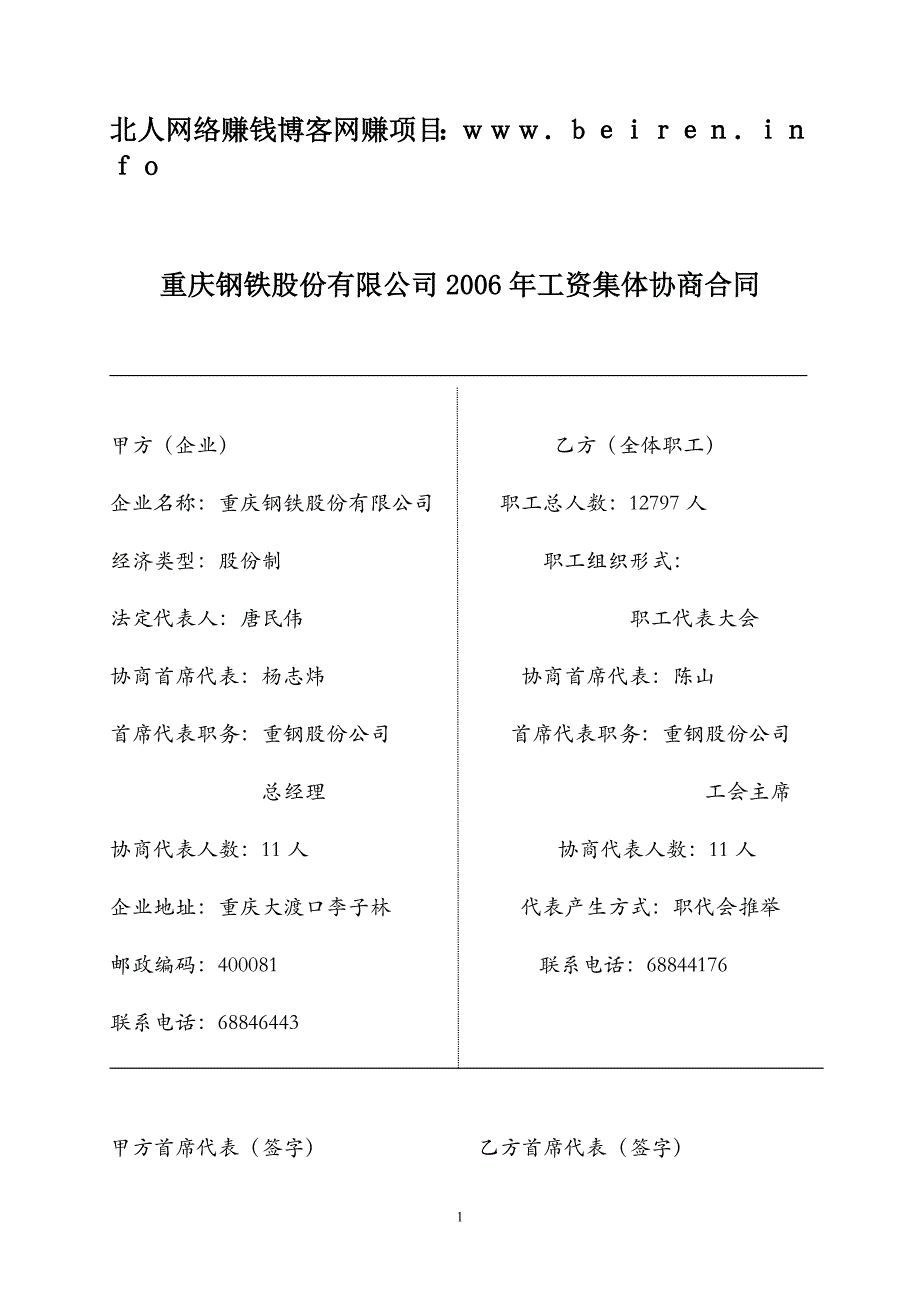 北人网络赚钱博客网赚项目：ｗｗｗ．ｂｅｉｒｅｎ．ｉｎ
ｆｏ
重庆钢铁股份有限公司 2006 年工资集体协商合同
甲方（企业） 乙方（全体职工）
企业名称：重庆钢铁股份有限公司 职工总人数：12797 人
经济类型：股份制 职工组织形式：
法定代表人：唐民伟 职工代表大会
协商首席代表：杨志炜 协商首席代表：陈山
首席代表职务：重钢股份公司 首席代表职务：重钢股份公司
总经理 工会主席
协商代表人数：11 人 协商代表人数：11 人
企业地址：重庆大渡口李子林 代表产生方式：职代会推举
邮政编码：400081 联系电话：68844176
联系电话：68846443
甲方首席代表（签字） 乙方首席代表（签字）
1